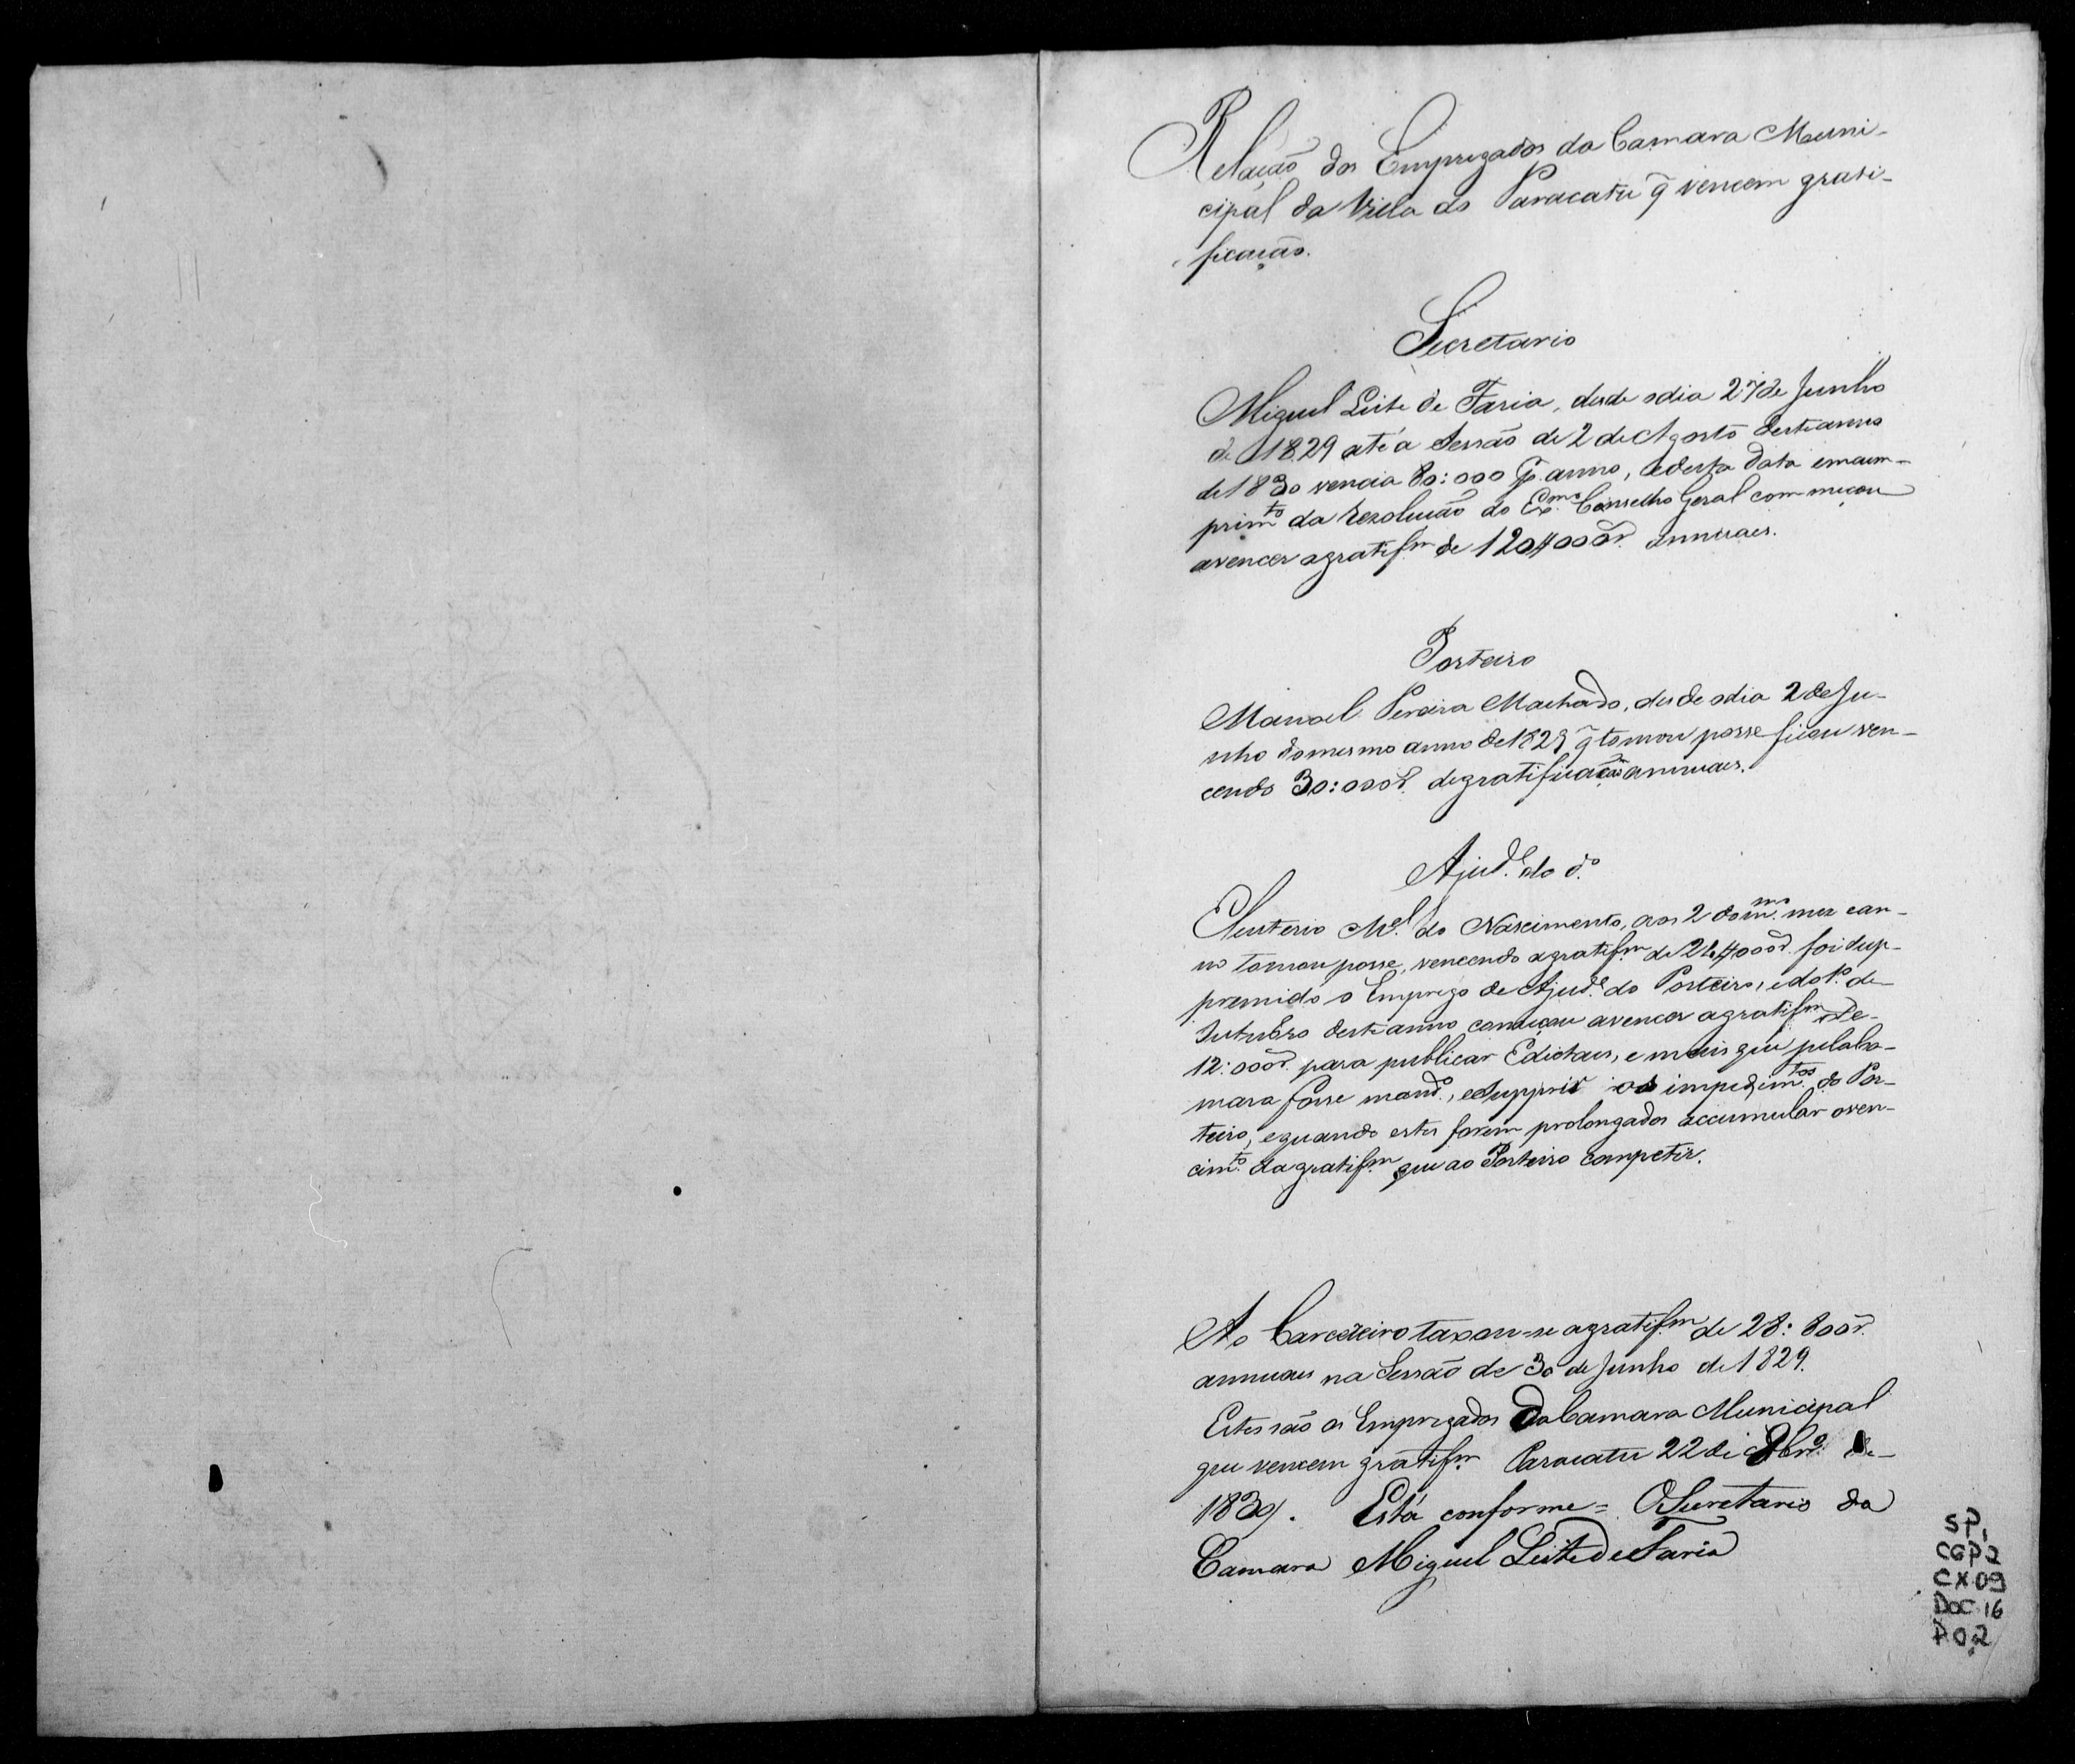 Relação dos Empregados da Camara Muni-
cipal da Villa do Paracatu q̃ vencem grati-
ficação.
Secretario
Miguel Leite de Faria, desde o dia 27 de Junho
de 1829 até a Sessão de 2 de Agosto deste anno
de 1830 vencia 80:000 p. anno, e desta data em cum-
prim.to da Rezolução do Ex.mo Conselho Geral commeçou
a vencer a gratif.m de 120#000r. annuaes.
Porteiro
Manoel Pereira Machado, desde o dia 2 de Ju-
nho do mesmo anno de 1829 q̃ tomou posse ficou ven-
cendo 30:000r. de gratificação annuaes.
Ajud.e do d.o
Eleuterio M.el do Nascimento, aos 2 do m.mo mez e an-
no tomou posse, vencendo a gratif.m de 24#000r. foi sup-
premido o Emprego de Ajud.e do Porteiro, e do 1.o de
Outubro deste anno começou a vencer a gratif.m de
12:000r. para publicar Edictaes, e mais que pela Ca-
mara fosse mand.o, e Supprir os impedim.tos do Por-
teiro, e quando estes forem prolongados accumular o ven-
cim.to da gratif.m que ao Porteiro competir.
Ao Carcereiro taxou-se a gratif.m de 28:800r.
annuaes na Sessão de 30 de Junho de 1829.
Estes são os Empregados da Camara Municipal
que vencem gratif.m Paracatu 22 de 8br.o de
1830. Está conforme = O Secretario da
Camara Miguel Leite de Faria
SP.
CGP2
CX.09
DOC.16
P.02